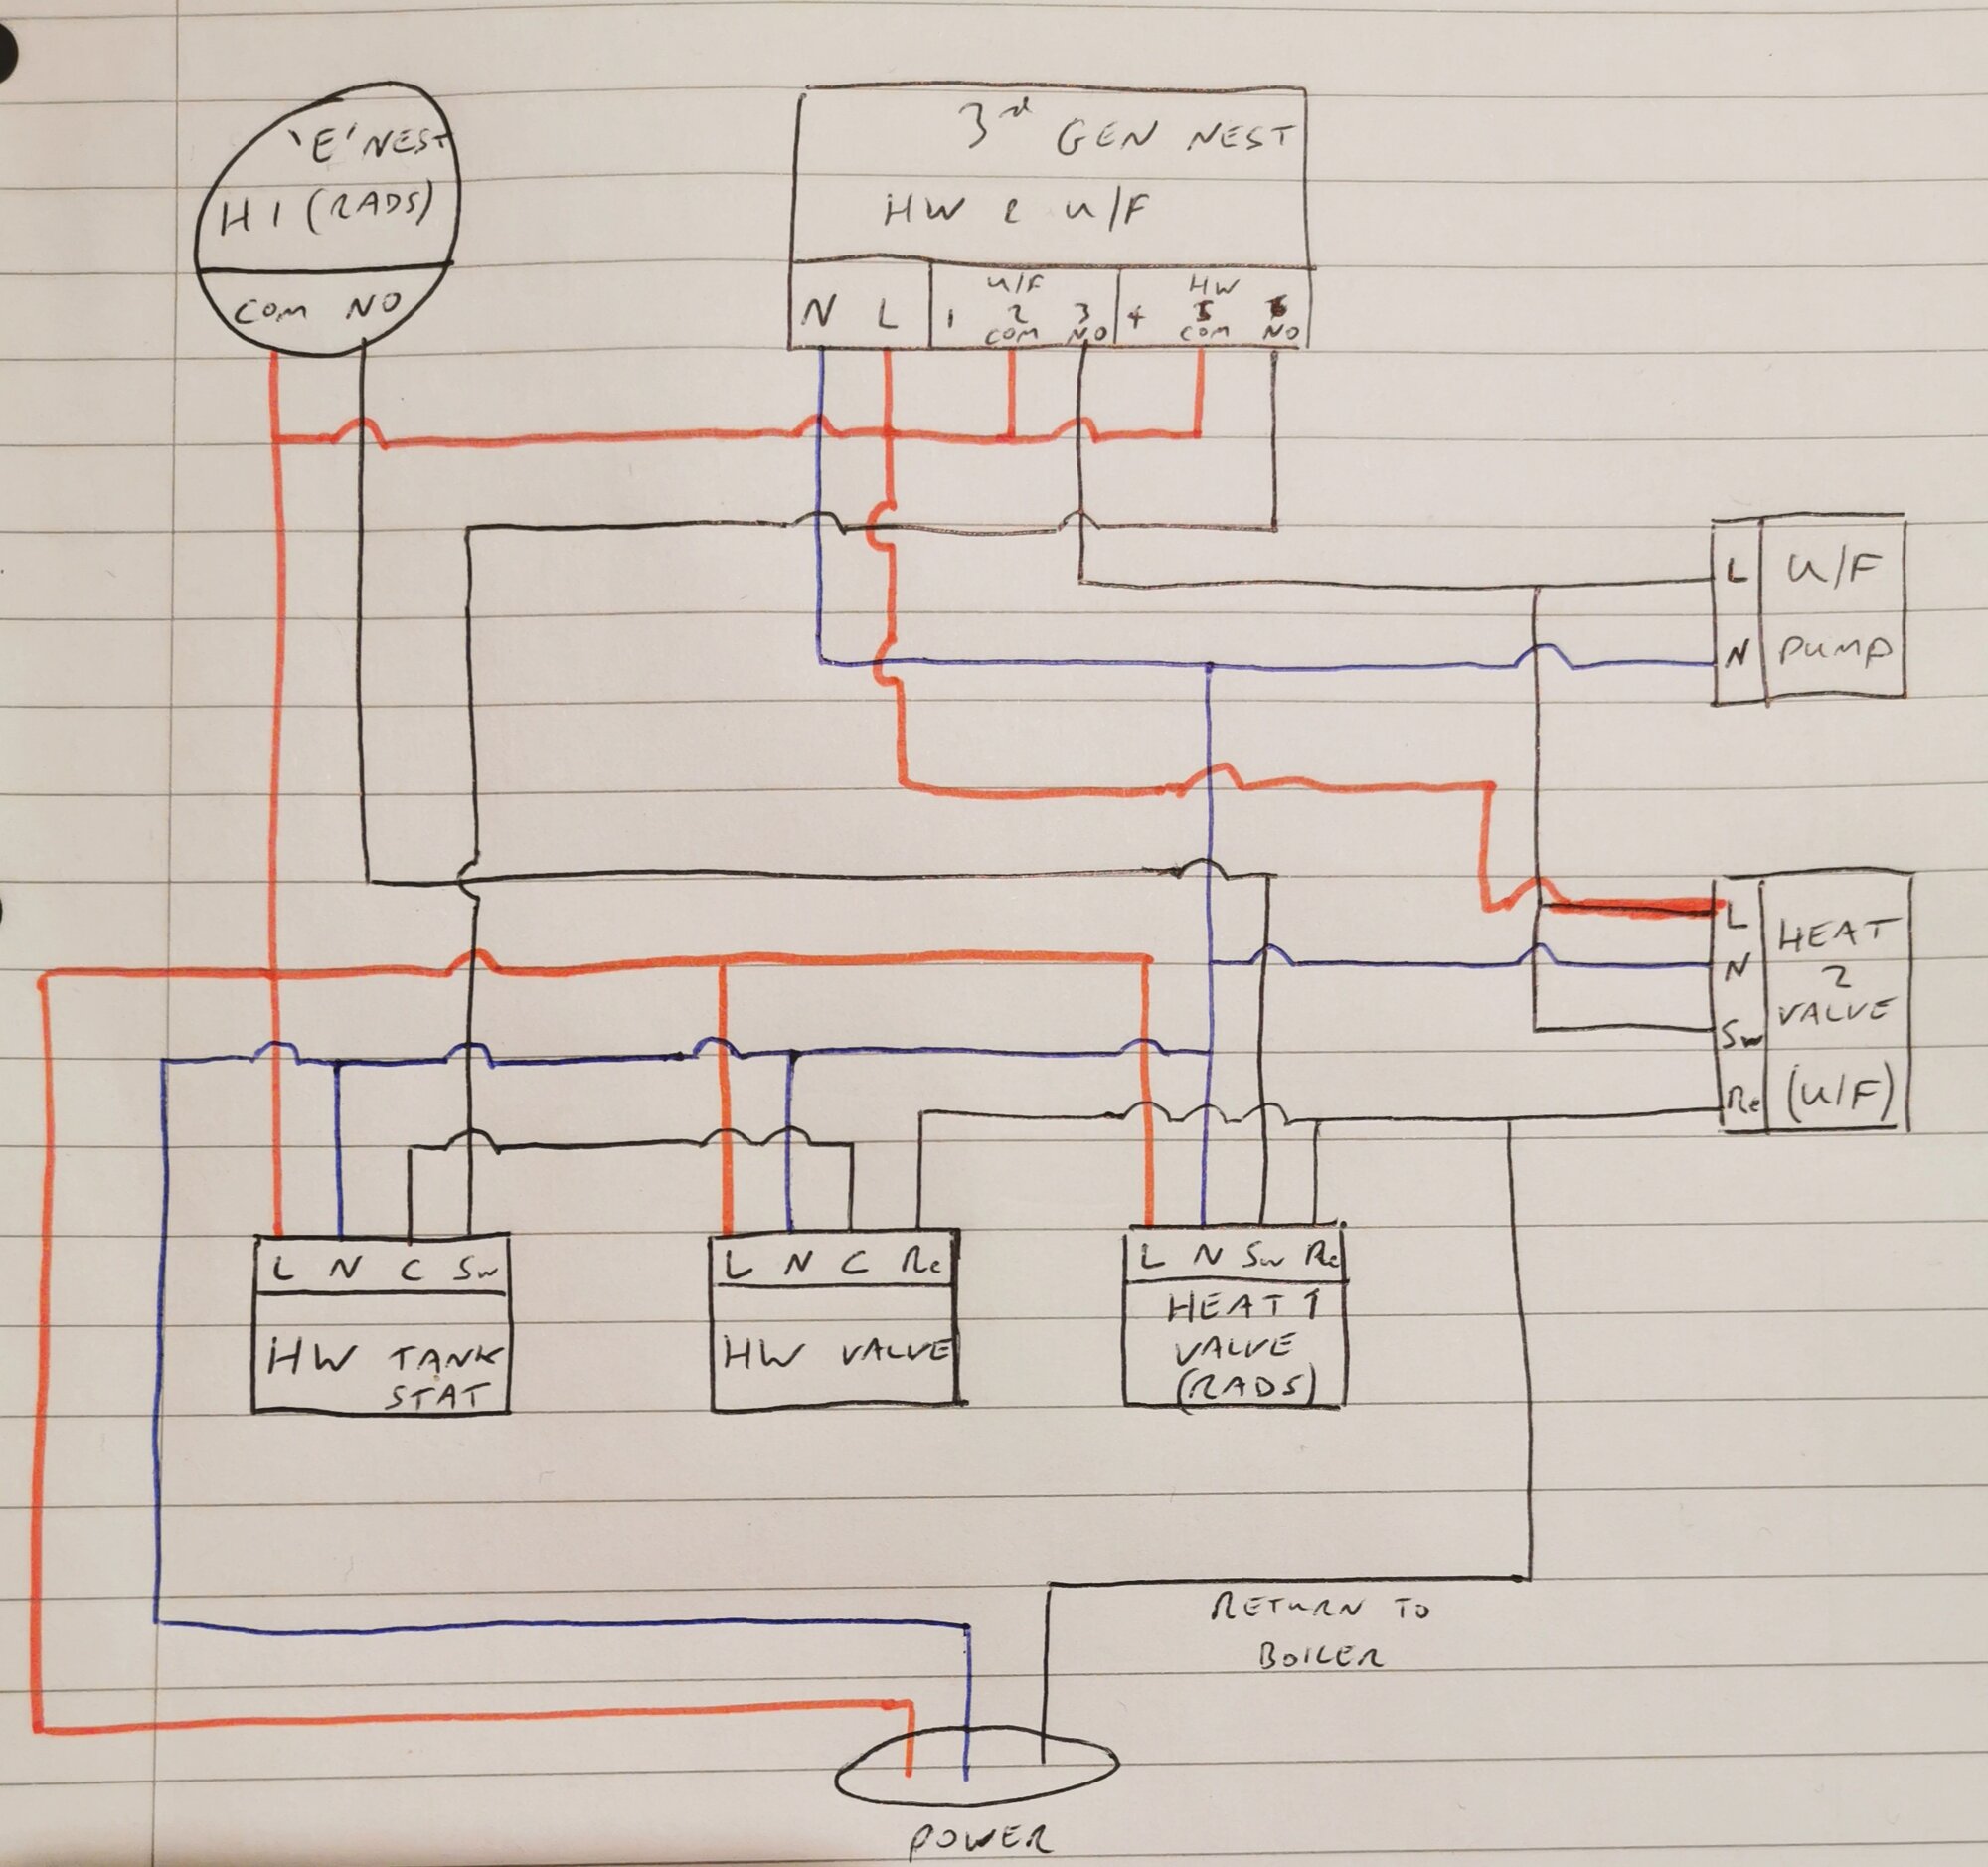 'E' NEST
H1 (RADS)
COM NO
3rd GEN NEST
HW & U/F
N L 1 U/F 2 COM 3 NO 4 HW 5 COM 6 NO
L U/F
N PUMP
L HEAT
N 2
VALVE
Sw
Re (U/F)
L N C Sw
HW TANK
STAT
L N C Re
HW VALVE
L N Sw Re
HEAT 1
VALVE
(RADS)
RETURN TO
BOILER
POWER